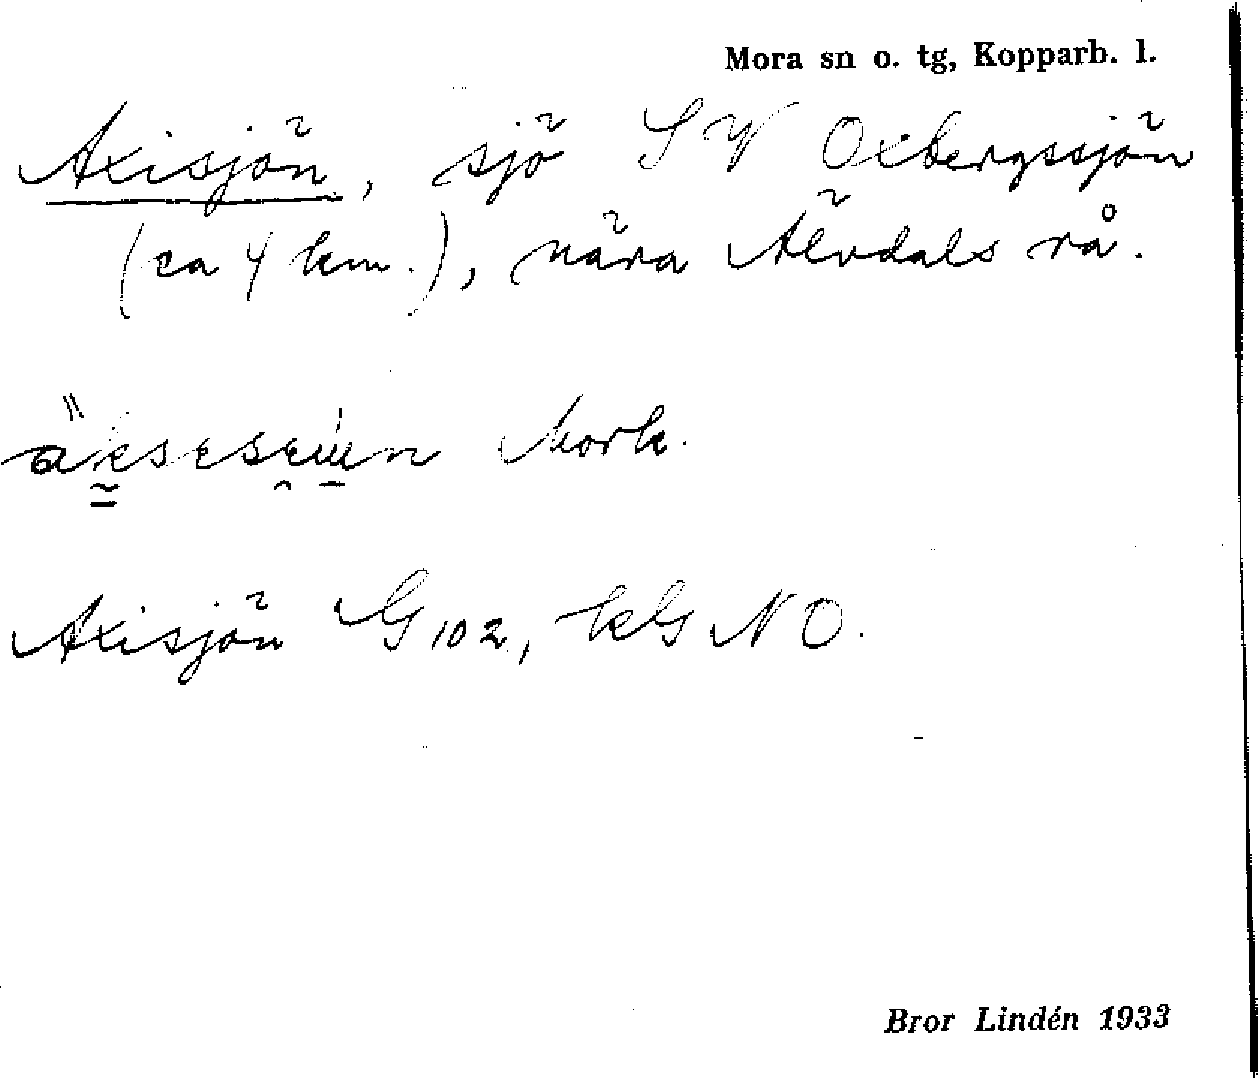 Mora sn o. tg, Kopparb. l.
Axisjön, sjö SV Oxbergssjön
(ca 4 km.), nära Älvdals rå.
Mork.
Axisjön G 102, kG NO.
Bror Lindén 1933